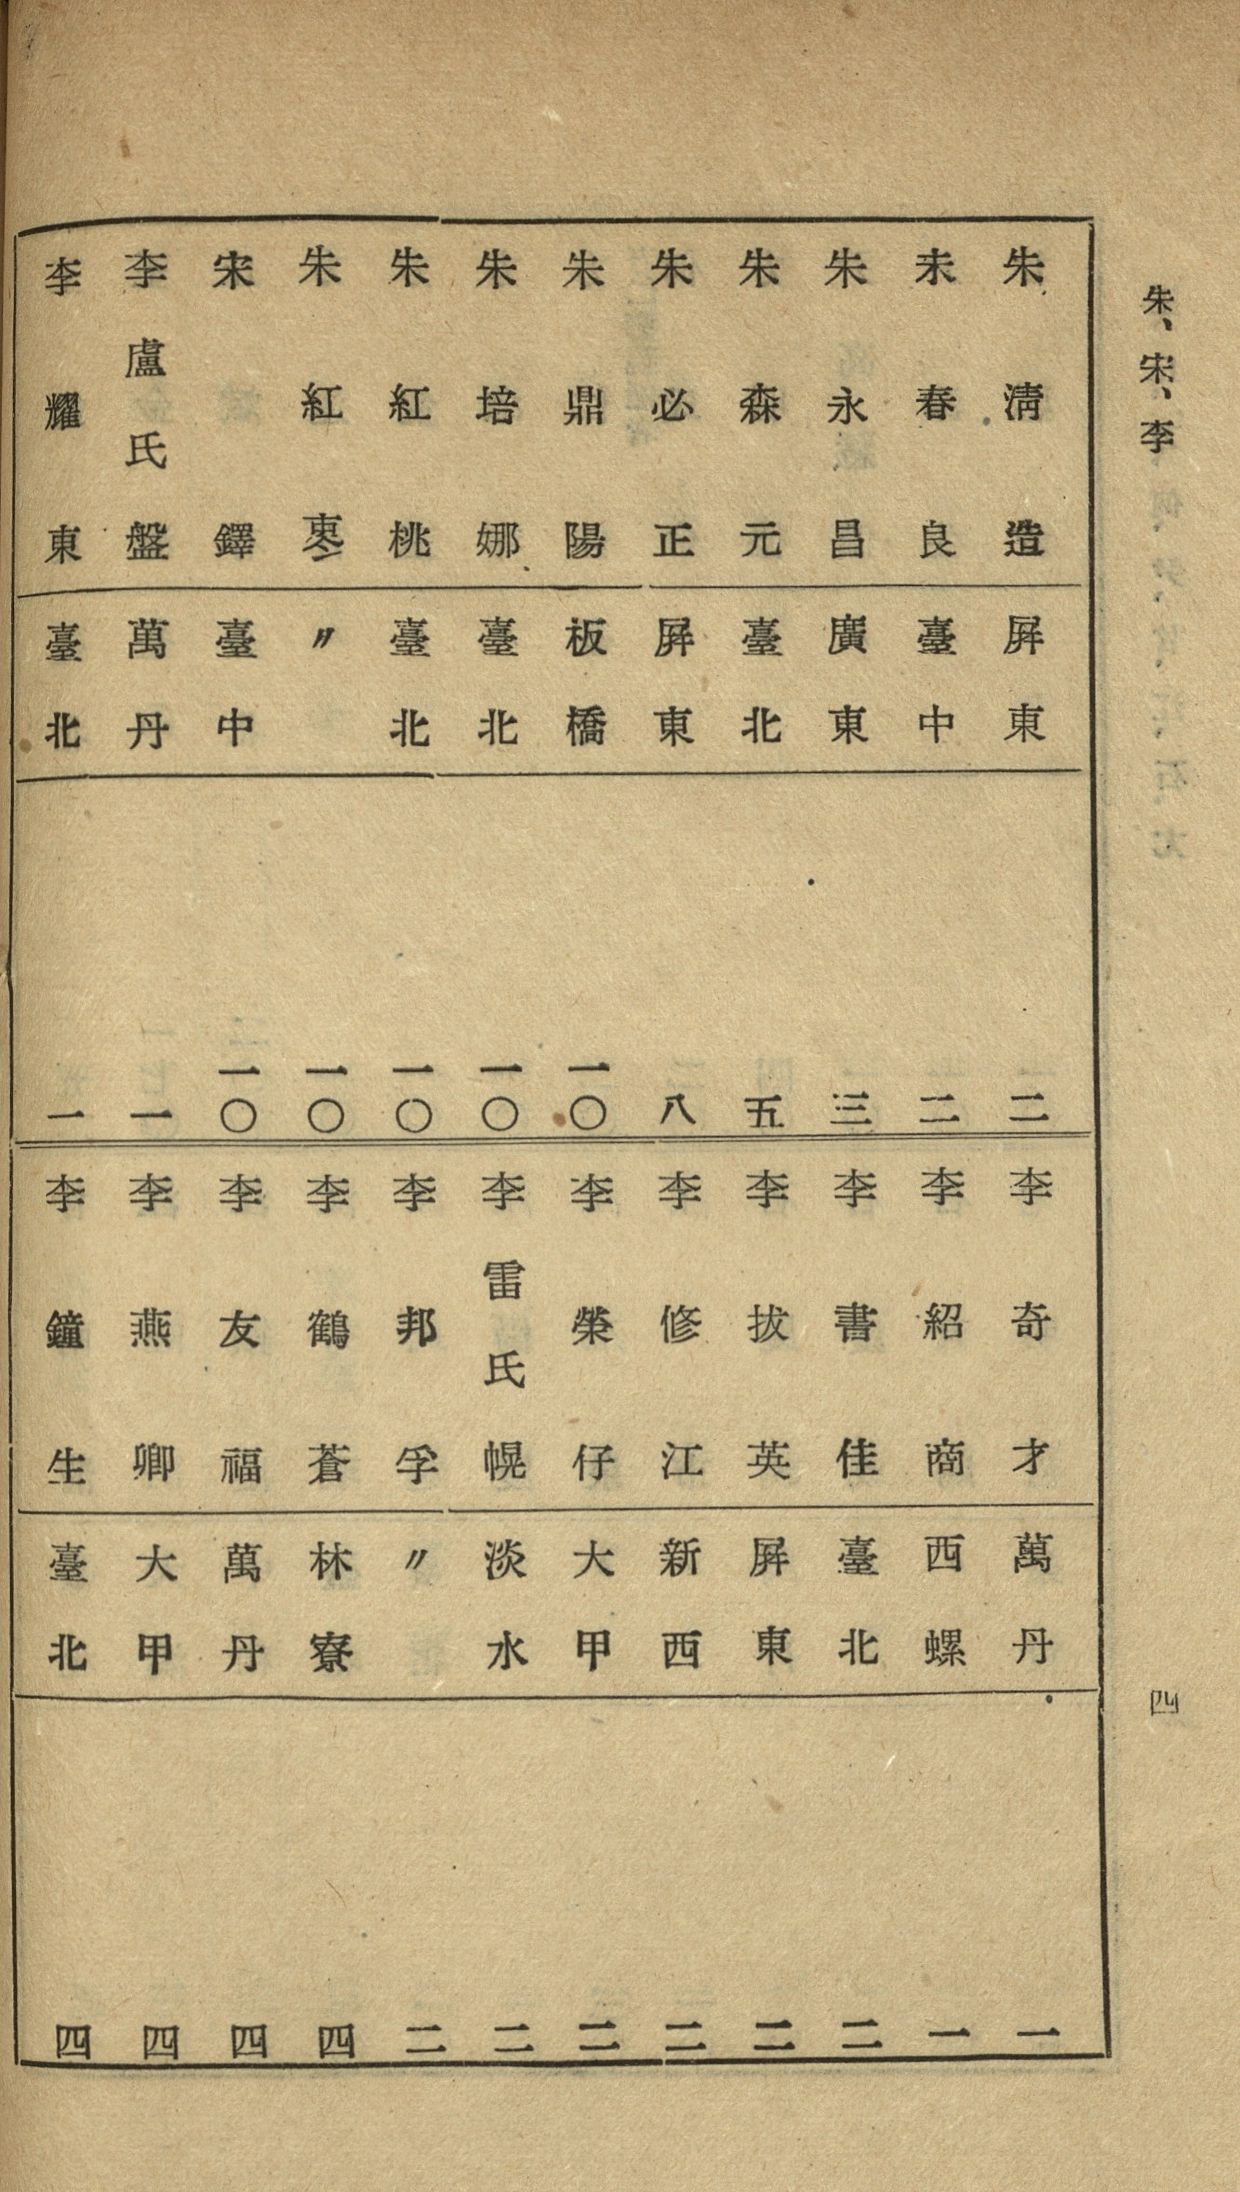 朱、宋、李
四
朱清造 屛東 二
未春良 臺中 二
朱永昌 廣東 三
朱森元 臺北 五
朱必正 屛東 八
朱鼎陽 板橋 一〇
朱培娜 臺北 一〇
朱紅桃 臺北 一〇
朱紅枣 〃 一〇
宋鐸 臺中 一〇
李盧氏盤 萬丹 一
李耀東 臺北 一
李奇才 萬丹 一
李紹商 西螺 一
李書佳 臺北 二
李拔英 屛東 二
李修江 新西 二
李榮仔 大甲 二
李雷氏幌 淡水 二
李邦孚 〃 二
李鶴蒼 林寮 四
李友福 萬丹 四
李燕卿 大甲 四
李鐘生 臺北 四